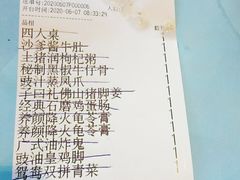 单号:20200607P000006
开台时间:2020-06-07 08:33:29
品相
四人桌
沙爹酱牛肚
土猪润枸杞粥
秘制黑椒牛仔骨
豉汁蒸凤爪
手口扎佛山猪脚姜
经典石磨鸡蛋肠
养颜降火龟苓膏
养颜降火龟苓膏
广式油炸鬼
豉油皇鸡脚
鸳鸯双拼青菜